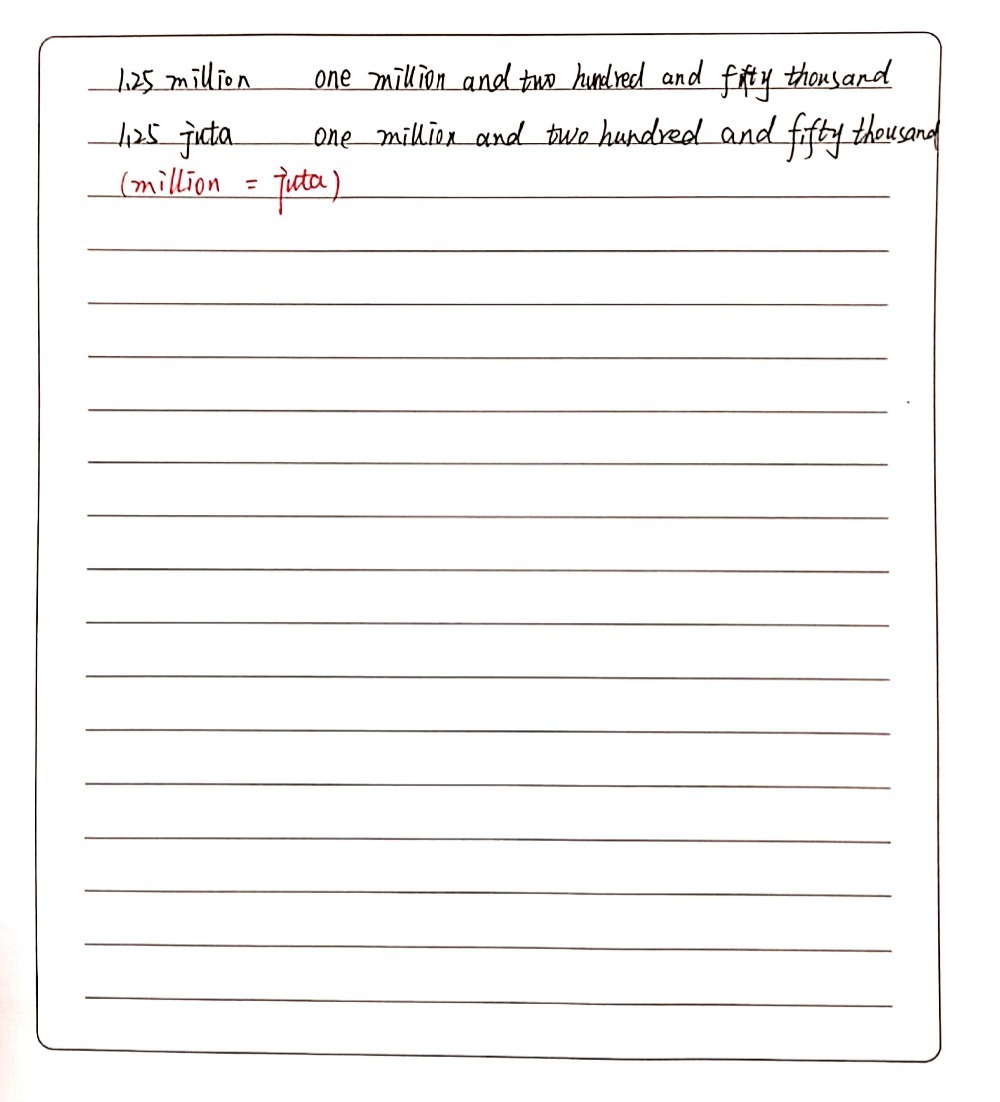 1,25 million one million and two hundred and fifty thousand
1,25 juta one million and two hundred and fifty thousand
(million = juta)